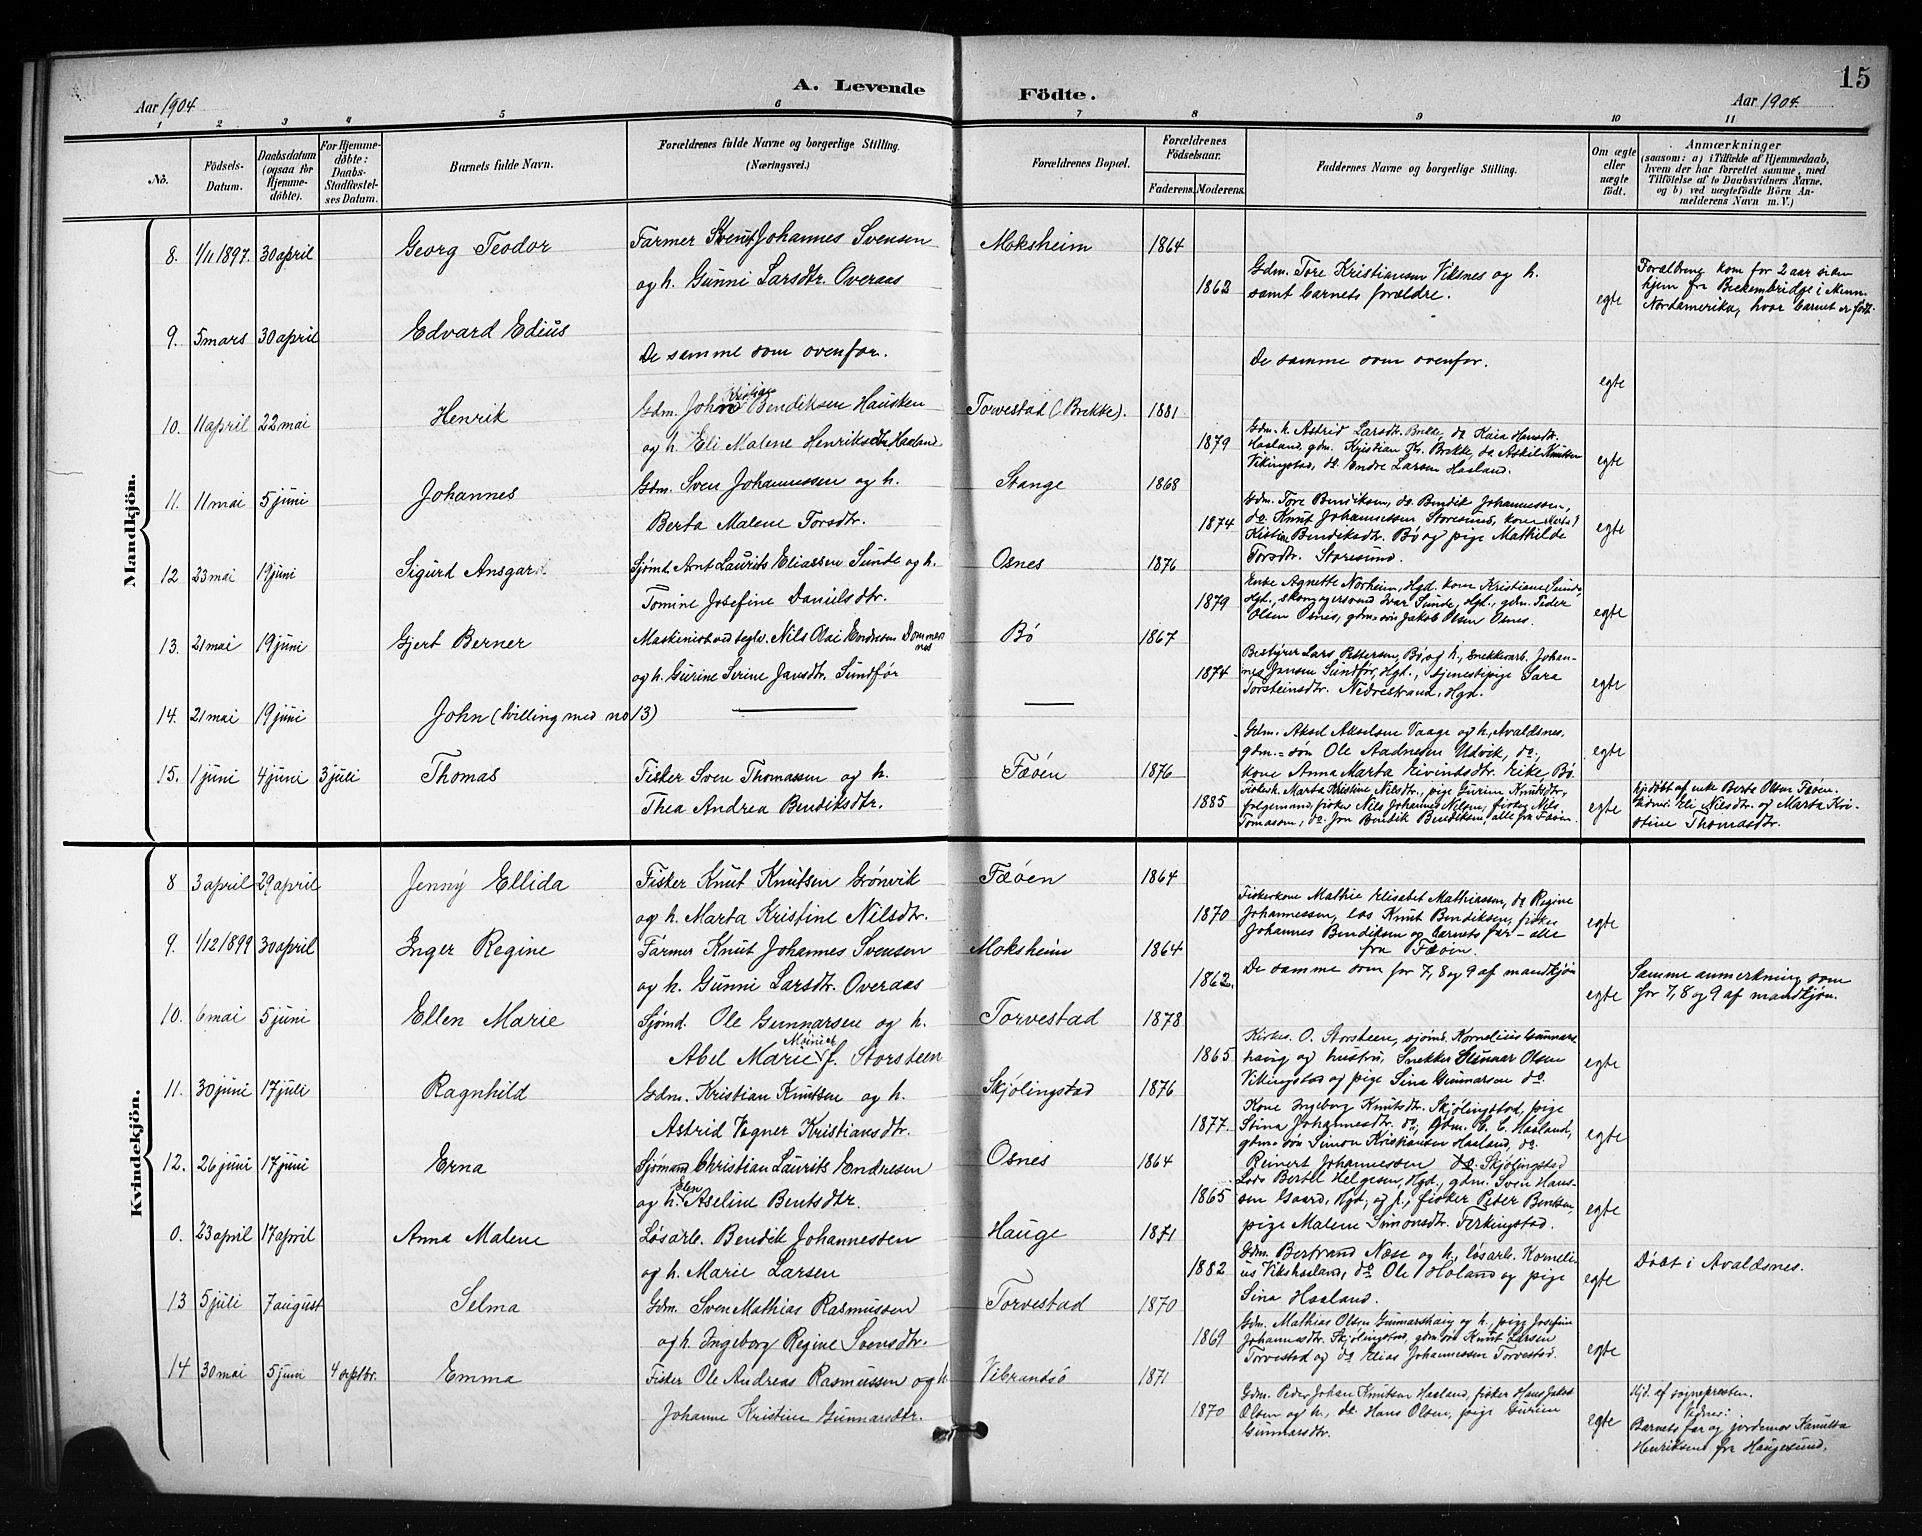 A. Levende Födte.
15
Aar 1904.
Aar 1904.
1 2 3 4 5 6 7 8 9 10 11
No.
Födsels-Datum.
Daabsdatum (ogsaa for Hjemmedöbte).
For Hjemmedöbte: Daabs-Stadfæstelses Datum.
Barnets fulde Navn.
Forældrenes fulde Navne og borgerlige Stilling. (Næringsvei.)
Forældrenes Bopæl.
Forældrenes Födselsaar.
Faderens. Moderens.
Faddernes Navne og borgerlige Stilling.
Om ægte eller uægte födt.
Anmærkninger (saasom: a) i Tilfælde af Hjemmedaab, hvem der har forrettet samme, med Tilföielse af to Daabsvidners Navne, og b) ved uegtefödte Börn Anmelderens Navn m. V.)
Mandkjön.
8. 1/11 1897. 30 april Georg Teodor Farmer Knut Johannes Svensen Moksheim 1864
og h. Gunni Larsdtr. Overaas 1862 Gdm. Tore Kristiansen Viksnes og h. samt barnets forældre. egte Forældrene kom for 2 aar siden hjem fra Breckenbridge i Minn. Nordamerika, hvor barnet er født.
9. 5 mars 30 april Edvard Edius
De samme som ovenfor. De samme som ovenfor. egte
10. 11 april 22 mai Henrik Gdm. John Kristian Bendiksen Hausken Torvestad (Brekke). 1881
og h. Eli Malene Henriksdtr. Haaland 1879 Gdm. h. Astrid Larsdtr. Brekke, do Kaia Hansdtr.
Haaland, gdm. Kristian Kr. Brekke, do Askild Knutsen
Vikingstad, do. Endre Larsen Haaland. egte
11. 11 mai 5 juni Johannes Gdm. Sven Johannessen og h. Stange 1868
Berta Malene Torsdtr. 1874 Gdm. Tore Bendiksen, do. Bendik Johannessen,
do Knut Johannessen Storesund, kone
Kristine Bendiksdtr. Bø og pige Mathilde
Torsdtr. Storesund. egte
12 23 mai 19 juni Sigurd Ansgard Sjømd. Arnt Laurits Eliassen Sunde og h. Osnes 1876
Tomine Josefine Danielsdtr. 1879 Enke Agnette Norheim, Hgd. kone Kristiane Sunde,
Hgd., skomagersvend Ivar Sunde, Hgd., gdm. Peder
Olsen Osnes, gdm.søn Jakob Olsen Osnes. egte
13. 21 mai 19 juni Gjert Berner Maskinist ved teglv. Nils Olai Endresen Dommersnes Bø 1867
og h. Gurine Serine Jansdtr. Sundfør 1874 Bestyrer Lars Pettersen, Bø og h., snekkerarb. Johan-
nes Jansen Sundfør, Hgd., tjenestepige Sara
Torsteinsdtr. Nedrestrand, Hgd. egte
14. 21 mai 19 juni John (tvilling med no 13) ——— ———
Gdm. Aksel Akselsen Vaage og h., Avaldsnes,
gdm.-søn Ole Aadnesen Udvik, do;
kone Anna Marta Eivindsdtr. Eike, Bø. egte
15. 1 juni 4 juni 3 juli Thomas Fisker Sven Thomassen og h. Fæøen 1876
Thea Andrea Bendiksdtr. 1885 Fiskerk. Marta Kristine Nilsdtr., pige Gurine Knutsdtr.,
følgemand, fisker Nils Johannes Nilsen, fisker Nils
Tomassen, do. Jon Bendik Bendiksen, alle fra Fæøen egte Hjdøbt af enke Berte Olsen Fæøen.
Vidner: Eli Nilsdtr. og Marta Kri-
stine Thomasdtr.
Kvindekjön.
8 3 april 29 april Jenny Ellida Fisker Knut Knutsen Grønvik Fæøen 1864
og h. Marta Kristine Nilsdtr. 1870 Fiskerkone Mathie Elisabet Mathiassen, do Regine
Johannessen, los Knut Bendiksen, fisker
Johannes Bendiksen og barnets far – alle
fra Fæøen. egte
9. 1/12 1899 30 april Inger Regine Farmer Knut Johannes Svensen Moksheim 1864
og h. Gunni Larsdtr. Overaas 1862. De samme som for 7, 8 og 9 af mandkjøn egte Samme anmerkning som
for 7, 8 og 9 af mandkjøn.
10. 6 mai 5 juni Ellen Marie Sjømd. Ole Gunnarsen og h. Torvestad 1878
Abel Marie f. Storsteen 1865 Kirkes. O. Storsteen, sjømd. Kornelius Gunnars-
haug og hustru, Snekker Gunnar Olsen
Vikingstad og pige Sina Gunnarsen do. egte
11. 30 juni 17 juli Ragnhild Gdm. Kristian Knutsen og h. Skjølingstad 1876
Astrid Vogner Kristiansdtr. 1877. Kone Ingeborg Knutsdtr. Skjølingstad, pige
Stina Johannesdtr. do, Gdm. C. C. Haaland,
gdm.-søn Simon Kristiansen Haaland, do.
Reinert Johannessen do. Skjølingstad egte
12. 26 juni 17 juni Erna Sjømand Christian Laurits Endresen Osnes 1864
og h. Elen Aseline Bentsdtr. 1865 Lods Bertel Helgesen, Hgd., gdm. Sven Hans-
sen Gaard, Hgd., og f., fisker Peder Bentsen,
pige Malene Simonsdtr. Ferkingstad. egte
0. 23 april 17 april Anna Malene Løsarb. Bendik Johannessen Hauge 1871
og h. Marie Larsen 1882 Gdm. Bertrand Næse og h., løsarb. Korneli-
us Vikshaaland, do Ole Haland og pige
Sina Haaland. egte Døbt i Avaldsnes.
13 5 juli 7 august Selma Gdm. Sven Mathias Rasmussen Torvestad 1870
og h. Ingeborg Regine Svensdtr. 1869 Gdm. Mathias Olsen Gunnarshaug og h., pige Josefine
Johannesdtr. Skjølingstad, gdm.søn Knut Larsen
Torvestad og do Elias Johannessen Torvestad. egte
14 30 mai 5 juni 4 septbr. Emma Fisker Ole Andreas Rasmussen og h Vibrandsø 1871
Johanne Kristine Gunnarsdtr. 1870 Gdm. Peder Johan Knutsen Haaland, fisker Hans Jakob
Olsen og h., do. Hans Olsen, pige Gurine
Gunnarsdtr. egte Hjd. af sognepresten.
Vidner:
Barnets far og jordemor Kanutta
Henriksen fra Haugesund.